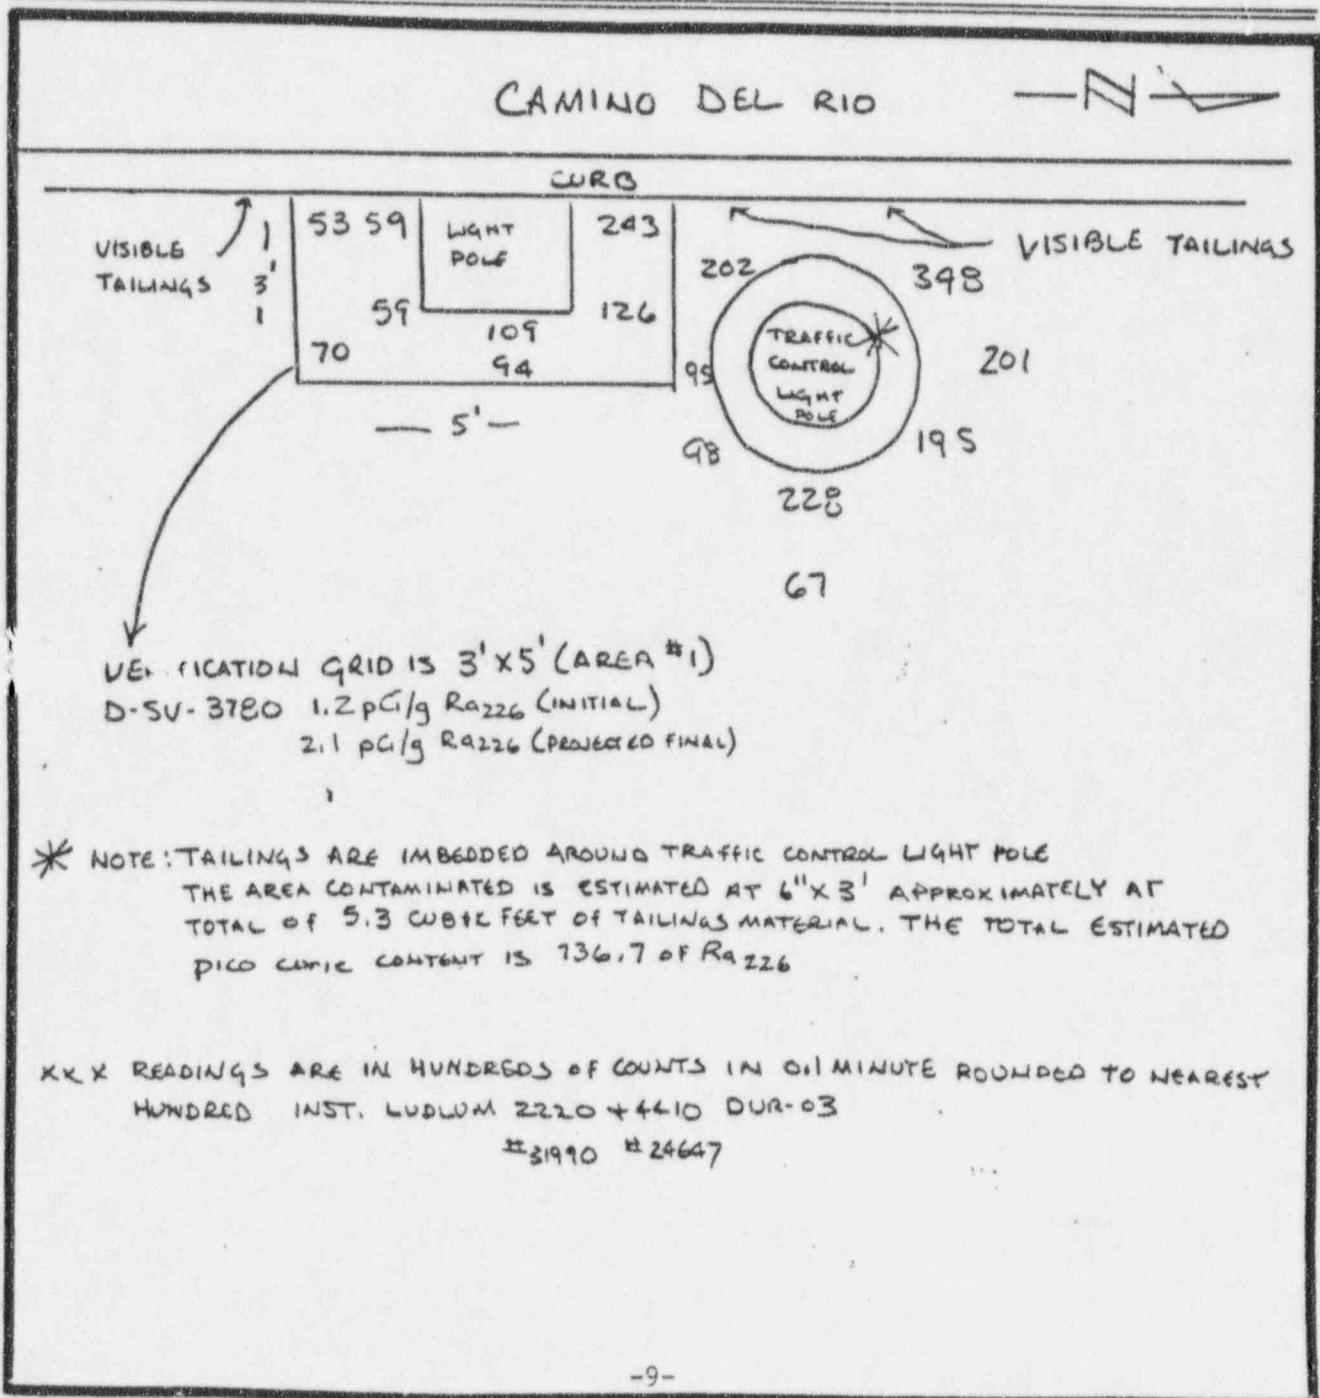 CAMINO DEL RIO
N
CURB
VISIBLE TAILINGS
3'
53 59
LIGHT POLE
243
59
126
109
70
94
5'
202
348
VISIBLE TAILINGS
TRAFFIC CONTROL LIGHT POLE
201
95
98
195
228
67
VE FICATION GRID IS 3'X5' (AREA #1)
D-SV-3780 1.2 pCi/g Ra226 (INITIAL)
2.1 pCi/g Ra226 (PROJECTED FINAL)
* NOTE: TAILINGS ARE IMBEDDED AROUND TRAFFIC CONTROL LIGHT POLE
THE AREA CONTAMINATED IS ESTIMATED AT 6" X 3' APPROXIMATELY AT
TOTAL OF 5.3 CUBIC FEET OF TAILINGS MATERIAL. THE TOTAL ESTIMATED
PICO CURIE CONTENT IS 736.7 OF Ra226
XXX READINGS ARE IN HUNDREDS OF COUNTS IN 0.1 MINUTE ROUNDED TO NEAREST
HUNDRED INST. LUDLUM 2220 + 4410 DUR-03
#31990 #24647
-9-